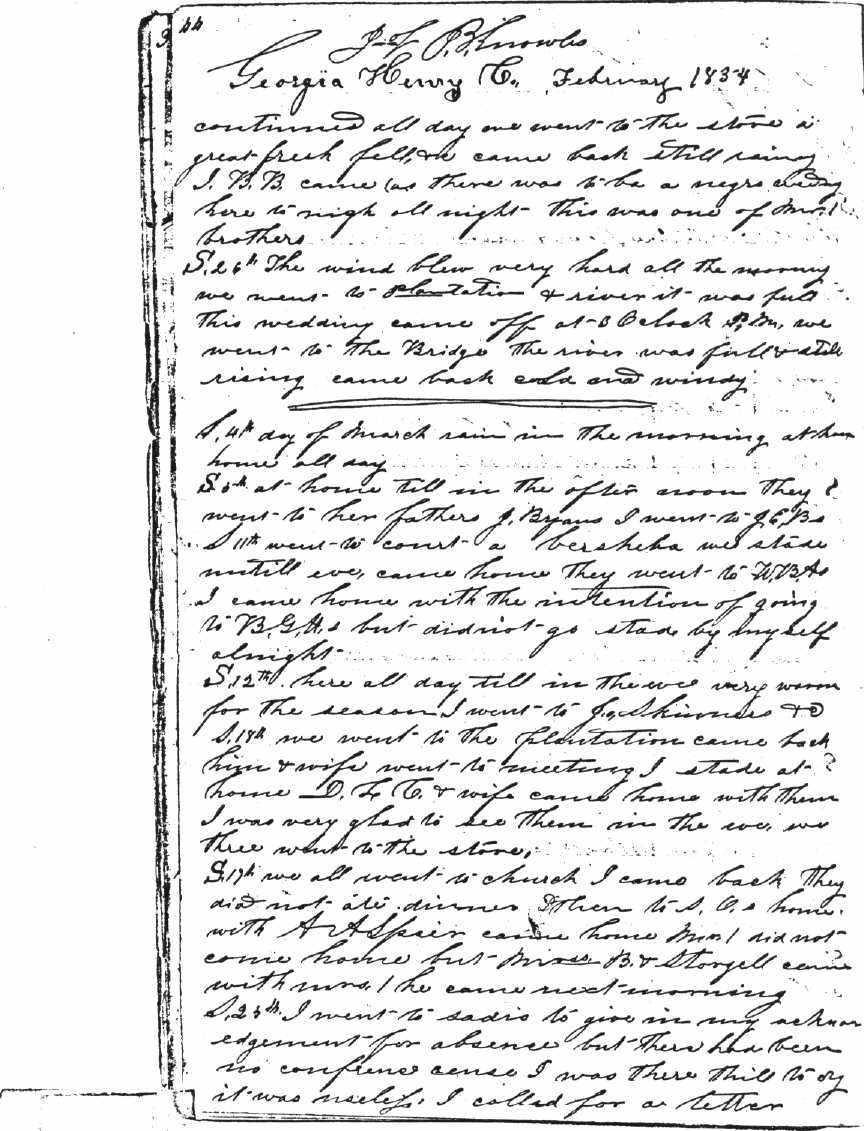 44
J. of P. B. Knowls
Georgia Henry C., February 1854
continued all day we went to the store a
great fresh fell, & we came back still rainy
I. B. B. came (as there was to be a negro
here to nigh all night this was one of Mrs. I
brothers
S. 26th The wind blew very hard all the morning
we went to plantation & river it was full
this wedding came off at 3 Oclock P. M. we
went to the Bridge the river was full & still
rising came back cold and windy
S. 4th day of March rain in the morning at
home all day
S 5th at home till in the after noon they
went to her fathers J. Bryans I went to J. C. Bs
S 11th went to court a bersheba we stade
untill eve, came home they went to W. B. As
I came home with the intention of going
to B. G. H. s but did not go stade by myself
alnight
S. 12th here all day till in the eve very warm
for the season I went to J., Skinners & C
S. 18th we went to the plantation came back
him & wife went to meeting I stade at
home D. L. C. & wife came home with them
I was very glad to see them in the eve. we
three went to the store,
S. 19th we all went to church I came back they
did not ate dinner & then to S. O. s home.
with A A Speir came home Mrs I did not
come home but B. & Storgell came
with mrs. I he came next morning
S. 25th I went to sadis to give in my
edgement for absence but there had been
no confrence cense I was there thill to dy
it was useless. I called for a letter